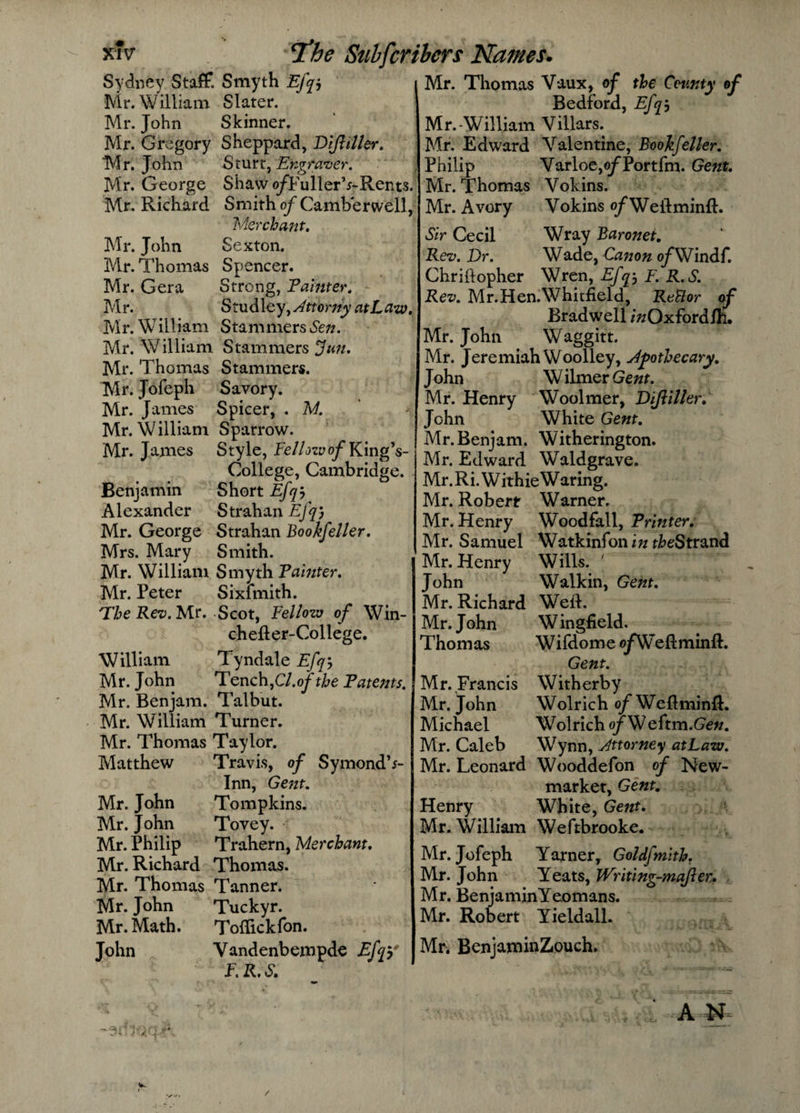 xiv The Subſcribers Names.
Sydney Staff. Smyth Eſq;
Mr. William Slater.
Mr. John Skinner.
Mr. Gregory Sheppard, Diſtiller.
Mr. John Sturt, Engraver.
Mr. George Shaw of Fuller's-Rents.
Mr. Richard Smith of Camberwell,
Merchant.
Mr. John Sexton.
Mr. Thomas Spencer.
Mr. Gera Strong, Painter.
Mr. Studley, Attorny at Law.
Mr. William Stammers Sen.
Mr. William Stammers Jun.
Mr. Thomas Stammers.
Mr. Joſeph Savory.
Mr. James Spicer, . M.
Mr. William Sparrow.
Mr. James Style, Fellow of King's-
College, Cambridge.
Benjamin Short Eſq;
Alexander Strahan Eſq;
Mr. George Strahan Bookſeller.
Mrs. Mary Smith.
Mr. William Smyth Painter.
Mr. Peter Sixſmith.
The Rev. Mr. Scot, Fellow of Win-
cheſter-College.
William Tyndale Eſq;
Mr. John Tench, Cl. of the Patents.
Mr. Benjam. Talbut.
Mr. William Turner.
Mr. Thomas Taylor.
Matthew Travis, of Symond's-
Inn, Gent.
Mr. John Tompkins.
Mr. John Tovey.
Mr. Philip Trahern, Merchant.
Mr. Richard Thomas.
Mr. Thomas Tanner.
Mr. John Tuckyr.
Mr. Math. Toſſickſon.
John Vandenbempde Eſq;
F. R. S.
Mr. Thomas Vaux, of the County of
Bedford, Eſq;
Mr. William Villars.
Mr. Edward Valentine, Bookſeller.
Philip Varloe, of Portſm. Gent.
Mr. Thomas Vokins.
Mr. Avory Vokins of Weſtminſt.
Sir Cecil Wray Baronet.
Rev. Dr. Wade, Canon of Windſ.
Chriſtopher Wren, Eſq; F. R. S.
Rev. Mr. Hen. Whitfield, Rector of
Bradwell in Oxfordſh.
Mr. John Waggitt.
Mr. Jeremiah Woolley, Apothecary.
John Wilmer Gent.
Mr. Henry Woolmer, Diſtiller.
John White Gent.
Mr. Benjam. Witherington.
Mr. Edward Waldgrave.
Mr. Ri. Withie Waring.
Mr. Robert Warner.
Mr. Henry Woodfall, Printer.
Mr. Samuel Watkinſon in the Strand
Mr. Henry Wills.
John Walkin, Gent.
Mr. Richard Weſt.
Mr. John Wingfield.
Thomas Wiſdome of Weſtminſt.
Gent.
Mr. Francis Witherby
Mr. John Wolrich of Weſtminſt.
Michael Wolrich of Weſtm. Gen.
Mr. Caleb Wynn, Attorney at Law.
Mr. Leonard Wooddeſon of New-
market, Gent.
Henry White, Gent.
Mr. William Weſtbrooke.
Mr. Joſeph Yarner, Goldſmith.
Mr. John Yeats, Writing-maſter.
Mr. Benjamin Yeomans.
Mr. Robert Yieldall.
Mr. Benjamin Zouch.
A N